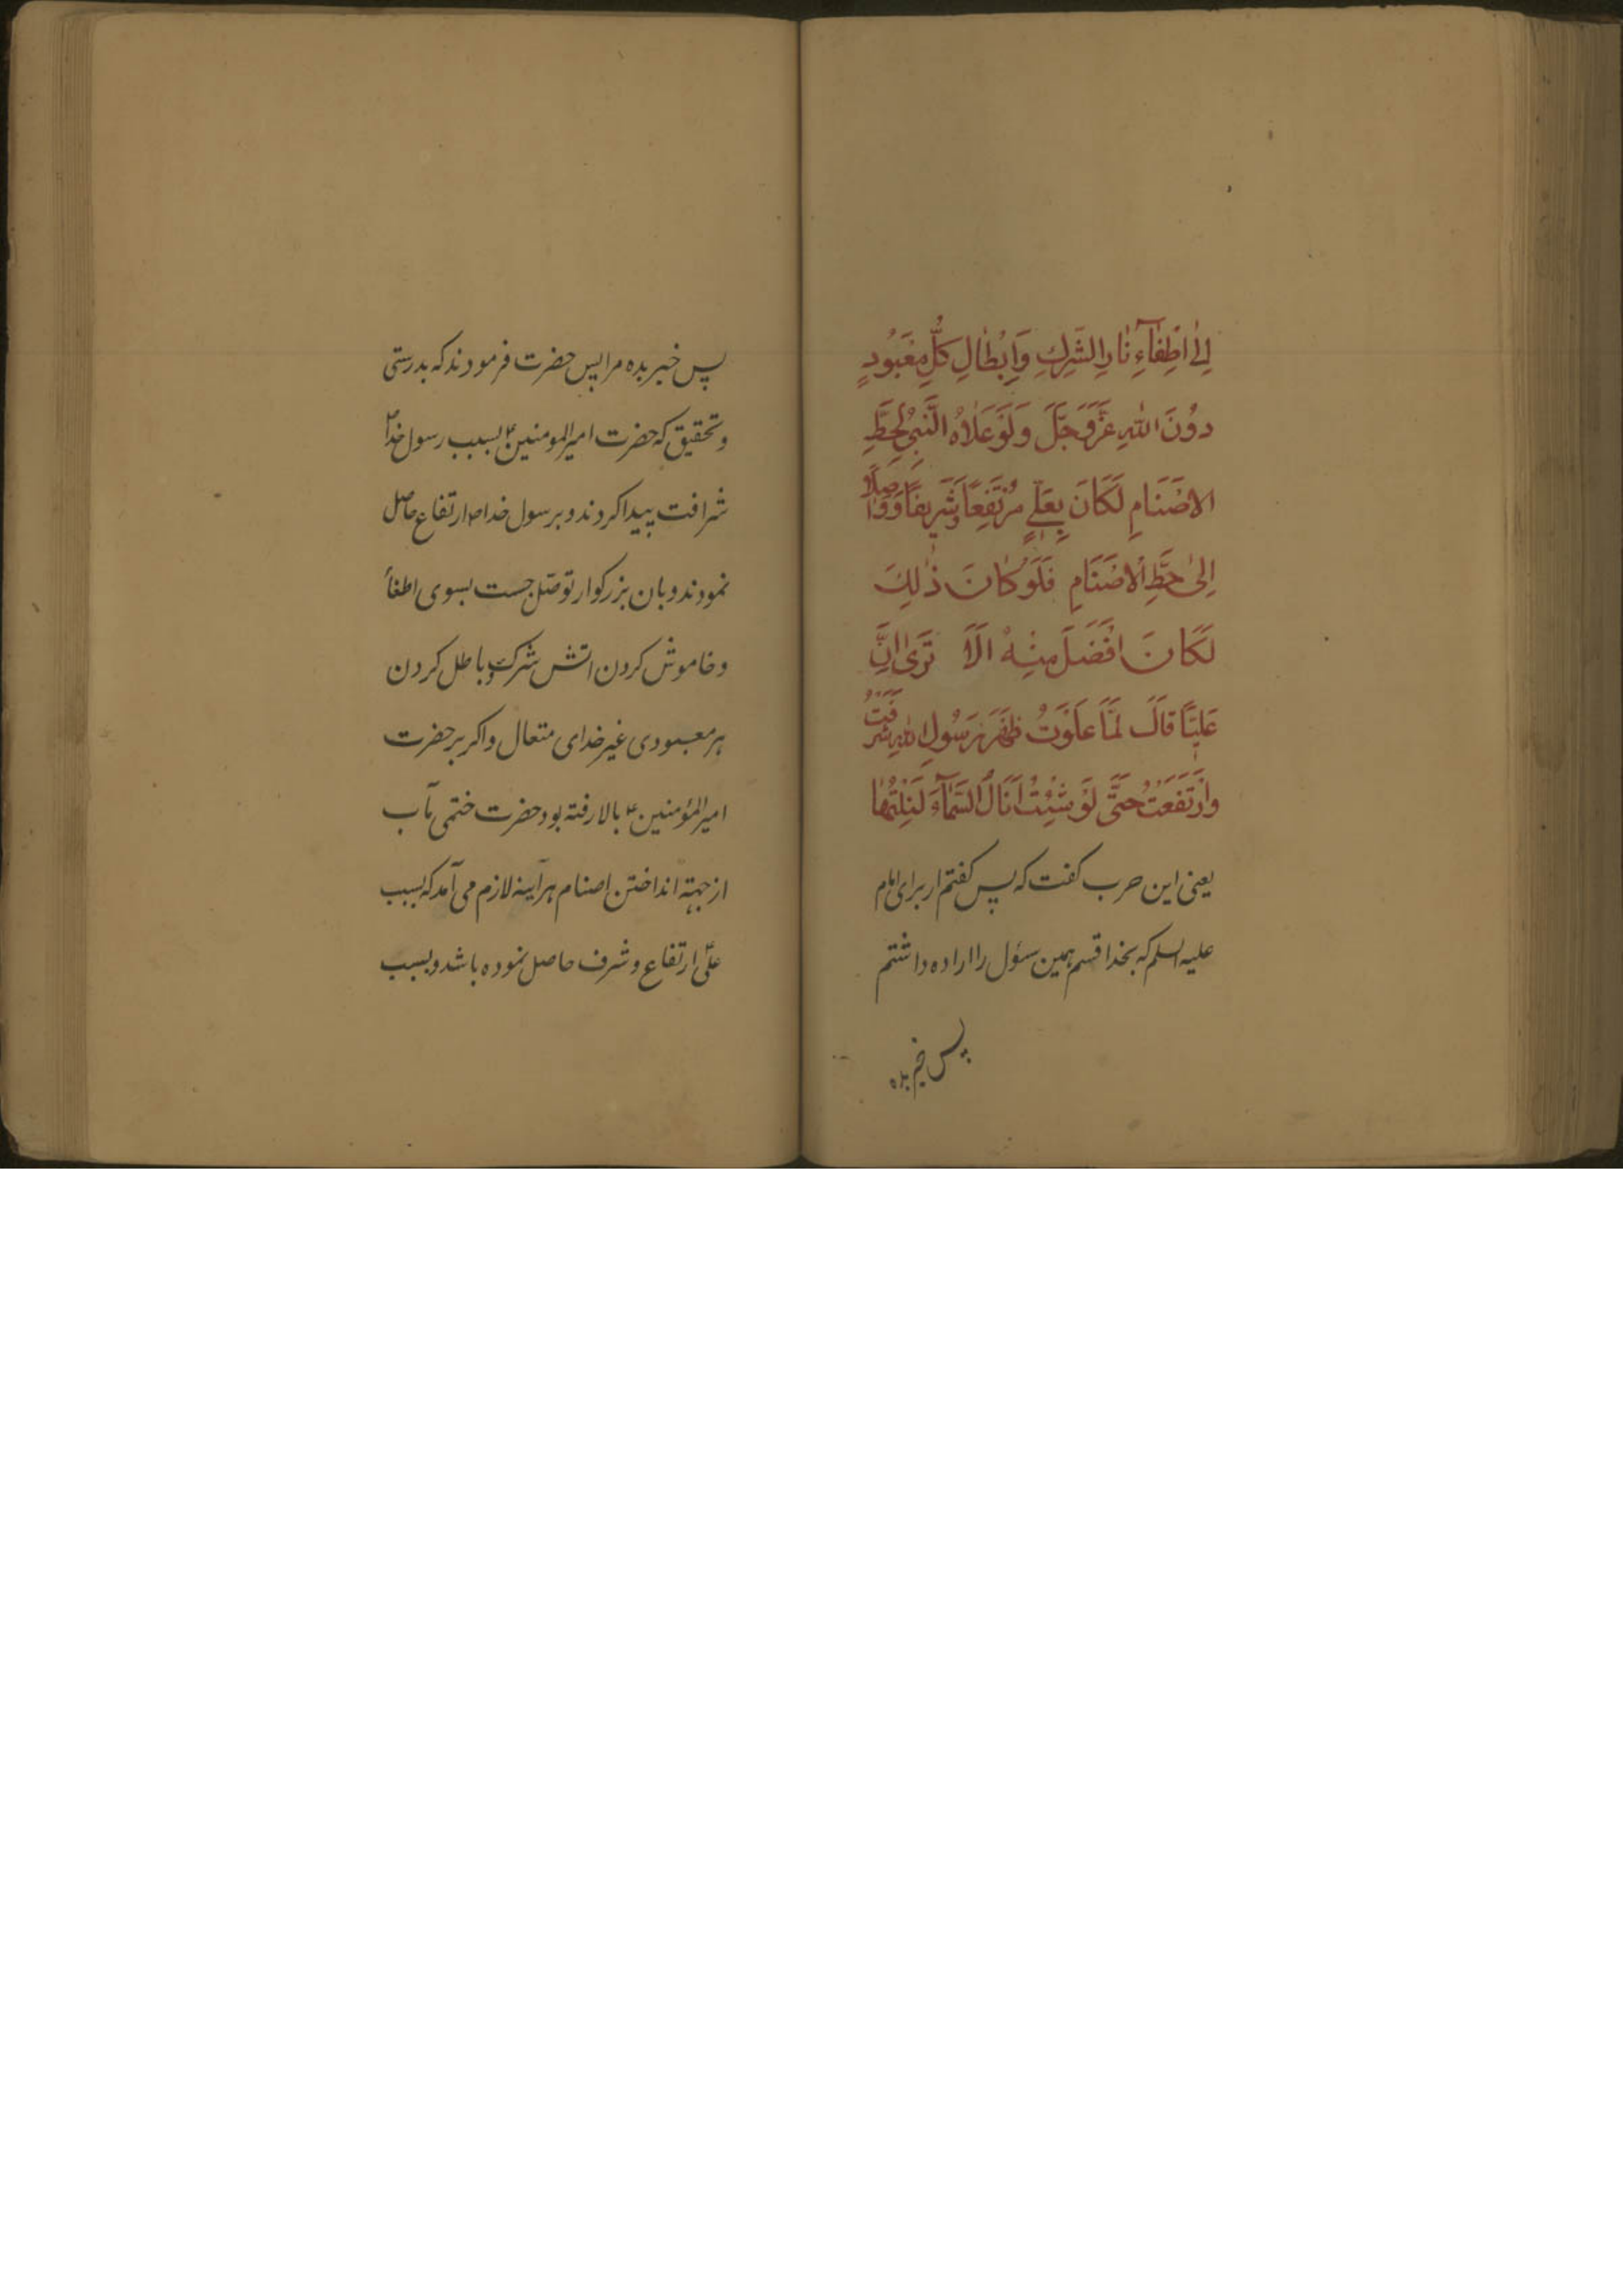 اِلٰى اِطْفٰاۤءِ نٰارِ الشِّرْكِ وَاِبْطٰالِ كُلِّ مَعْبُودٍ
دُونَ اللهِ عَزَّ وَجَلَّ وَلَوْ عَلَاهُ النَّبِىُّ لِحَطِّ
الاَصْنَامِ لَكَانَ بِعَلِىٍّ مُرْتَفِعًا وَشَرِيفًا وَوٰاصِلًا
اِلىٰ حَطِّ الاَصْنَامِ فَلَوْ كٰانَ ذٰلِكَ
لَكَانَ اَفْضَلَ مِنْهُ اَلَا تَرَىٰ اَنَّ
عَلِيًّا قَالَ لَمَّا عَلَوْتُ ظَهْرَ رَسُولِ اللهِ شَرُفْتُ
وَارْتَفَعْتُ حَتَّى لَوْ شِئْتُ اَنَالَ السَّمَآءَ لَنِلْتُهَا
یعنی ابن حرب کفت که پس کفتم از برای امام
علیه السلم که بخدا قسم همین سؤل را اراده داشتم
پس خبر بده
پس خبر بده مرا پس حضرت فرمودند که بدرستی
و تحقیق که حضرت امیرالمومنین ع بسبب رسول خدا ص
شرافت پیدا کردند و برسول خدا ص ارتفاع حاصل
نمودند و بان بزرکوار توصّل جست بسوی اطفأ
و خاموش کردن اتش شرک و باطل کردن
هر معبودی غیر خدای متعال و اکر بر حضرت
امیرالمؤمنین ع بالا رفته بود حضرت ختمی مآب
از جهة انداختن اصنام هرآینه لازم می آمد که بسبب
علّی ارتفاع و شرف حاصل نموده باشد و بسبب